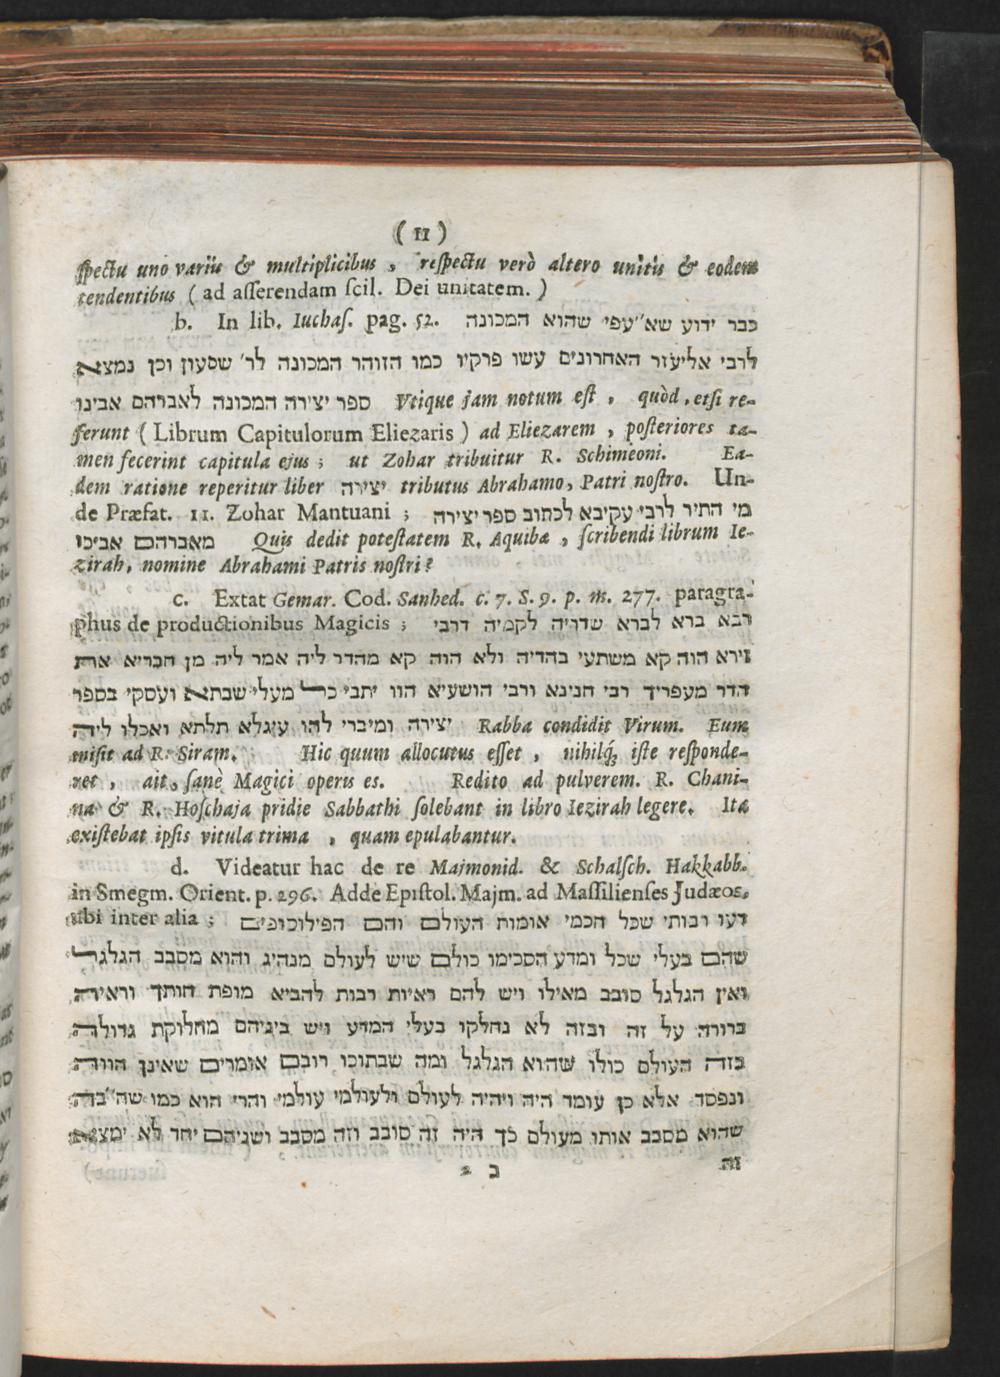 ( 11 )
spectu uno variis & multiplicibus, respectu verò altero unitis & eodem
tendentibus ( ad asserendam scil. Dei unitatem. )
b. In lib. Iuchas. pag. 52. כבר ידוע שא״עפי שהוא המכונה
לרבי אליעזר האחרונים עשו פרקיו כמו הזוהר המכונה לר׳ שסעון וכן נמצא
ספר יצירה המכונה לאברהם אבינו Vtique jam notum est, quòd, etsi re-
ferunt ( Librum Capitulorum Eliezaris ) ad Eliezarem, posteriores ta-
men fecerint capitula ejus; ut Zohar tribuitur R. Schimeoni. Ea-
dem ratione reperitur liber יצירה tributus Abrahamo, Patri nostro. Un-
de Præfat. 11. Zohar Mantuani; מי התיר לרבי עקיבא לכתוב ספר יצירה
מאברהם אביכו Quis dedit potestatem R. Aquibæ, scribendi librum Ie-
zirah, nomine Abrahami Patris nostri?
c. Extat Gemar. Cod. Sanhed. c. 7. S. 9. p. m. 277. paragra-
phus de productionibus Magicis; רבא ברא לברא שדריה לקמיה דרבי
זירא הוה קא משתעי בהדיה ולא הוה קא מהדר ליה אמר ליה מן חבריא את
הדר מעפריך רבי חנינא ורבי הושעיא הוו יתבי כל מעלי שבתא ועסקי בספר
יצירה ומיברי להו עיגלא תלתא ואכלו ליה Rabba condidit Virum. Eum
misit ad R. Siram. Hic quum allocutus esset, nihilq́; iste responde-
ret, ait, sanè Magici operis es. Redito ad pulverem. R. Chani-
na & R. Hoschaja pridie Sabbathi solebant in libro Iezirah legere. Ita
existebat ipsis vitula trima, quam epulabantur.
d. Videatur hac de re Majmonid. & Schalsch. Hakkabb.
in Smegm. Orient. p. 296. Adde Epistol. Majm. ad Massilienses Judæos,
ubi inter alia; דעו רבותי שכל חכמי אומות העולם והם הפילוכופים
שהם בעלי שכל ומדע הסכימו כולם שיש לעולם מנהיג והוא מסבב הגלגל
ואין הגלגל סובב מאילו ויש להם ראיות רבות להביא מופת חותך וראיה
ברורה על זה ובזה לא נחלקו בעלי המדע ויש ביניהם מחלוקת גדולה
בזה העולם כולו שהוא הגלגל ומה שבתוכו רובם אומרים שאינן הווה
ונפסד אלא כן עומד היה ויהיה לעולם ולעולמי עולמי והרי הוא כמו שה״בה
שהוא מסבב אותו מעולם כך היה זה סובב וזה מסבב ושניהם יחד לא ימצא
ב 2 זה